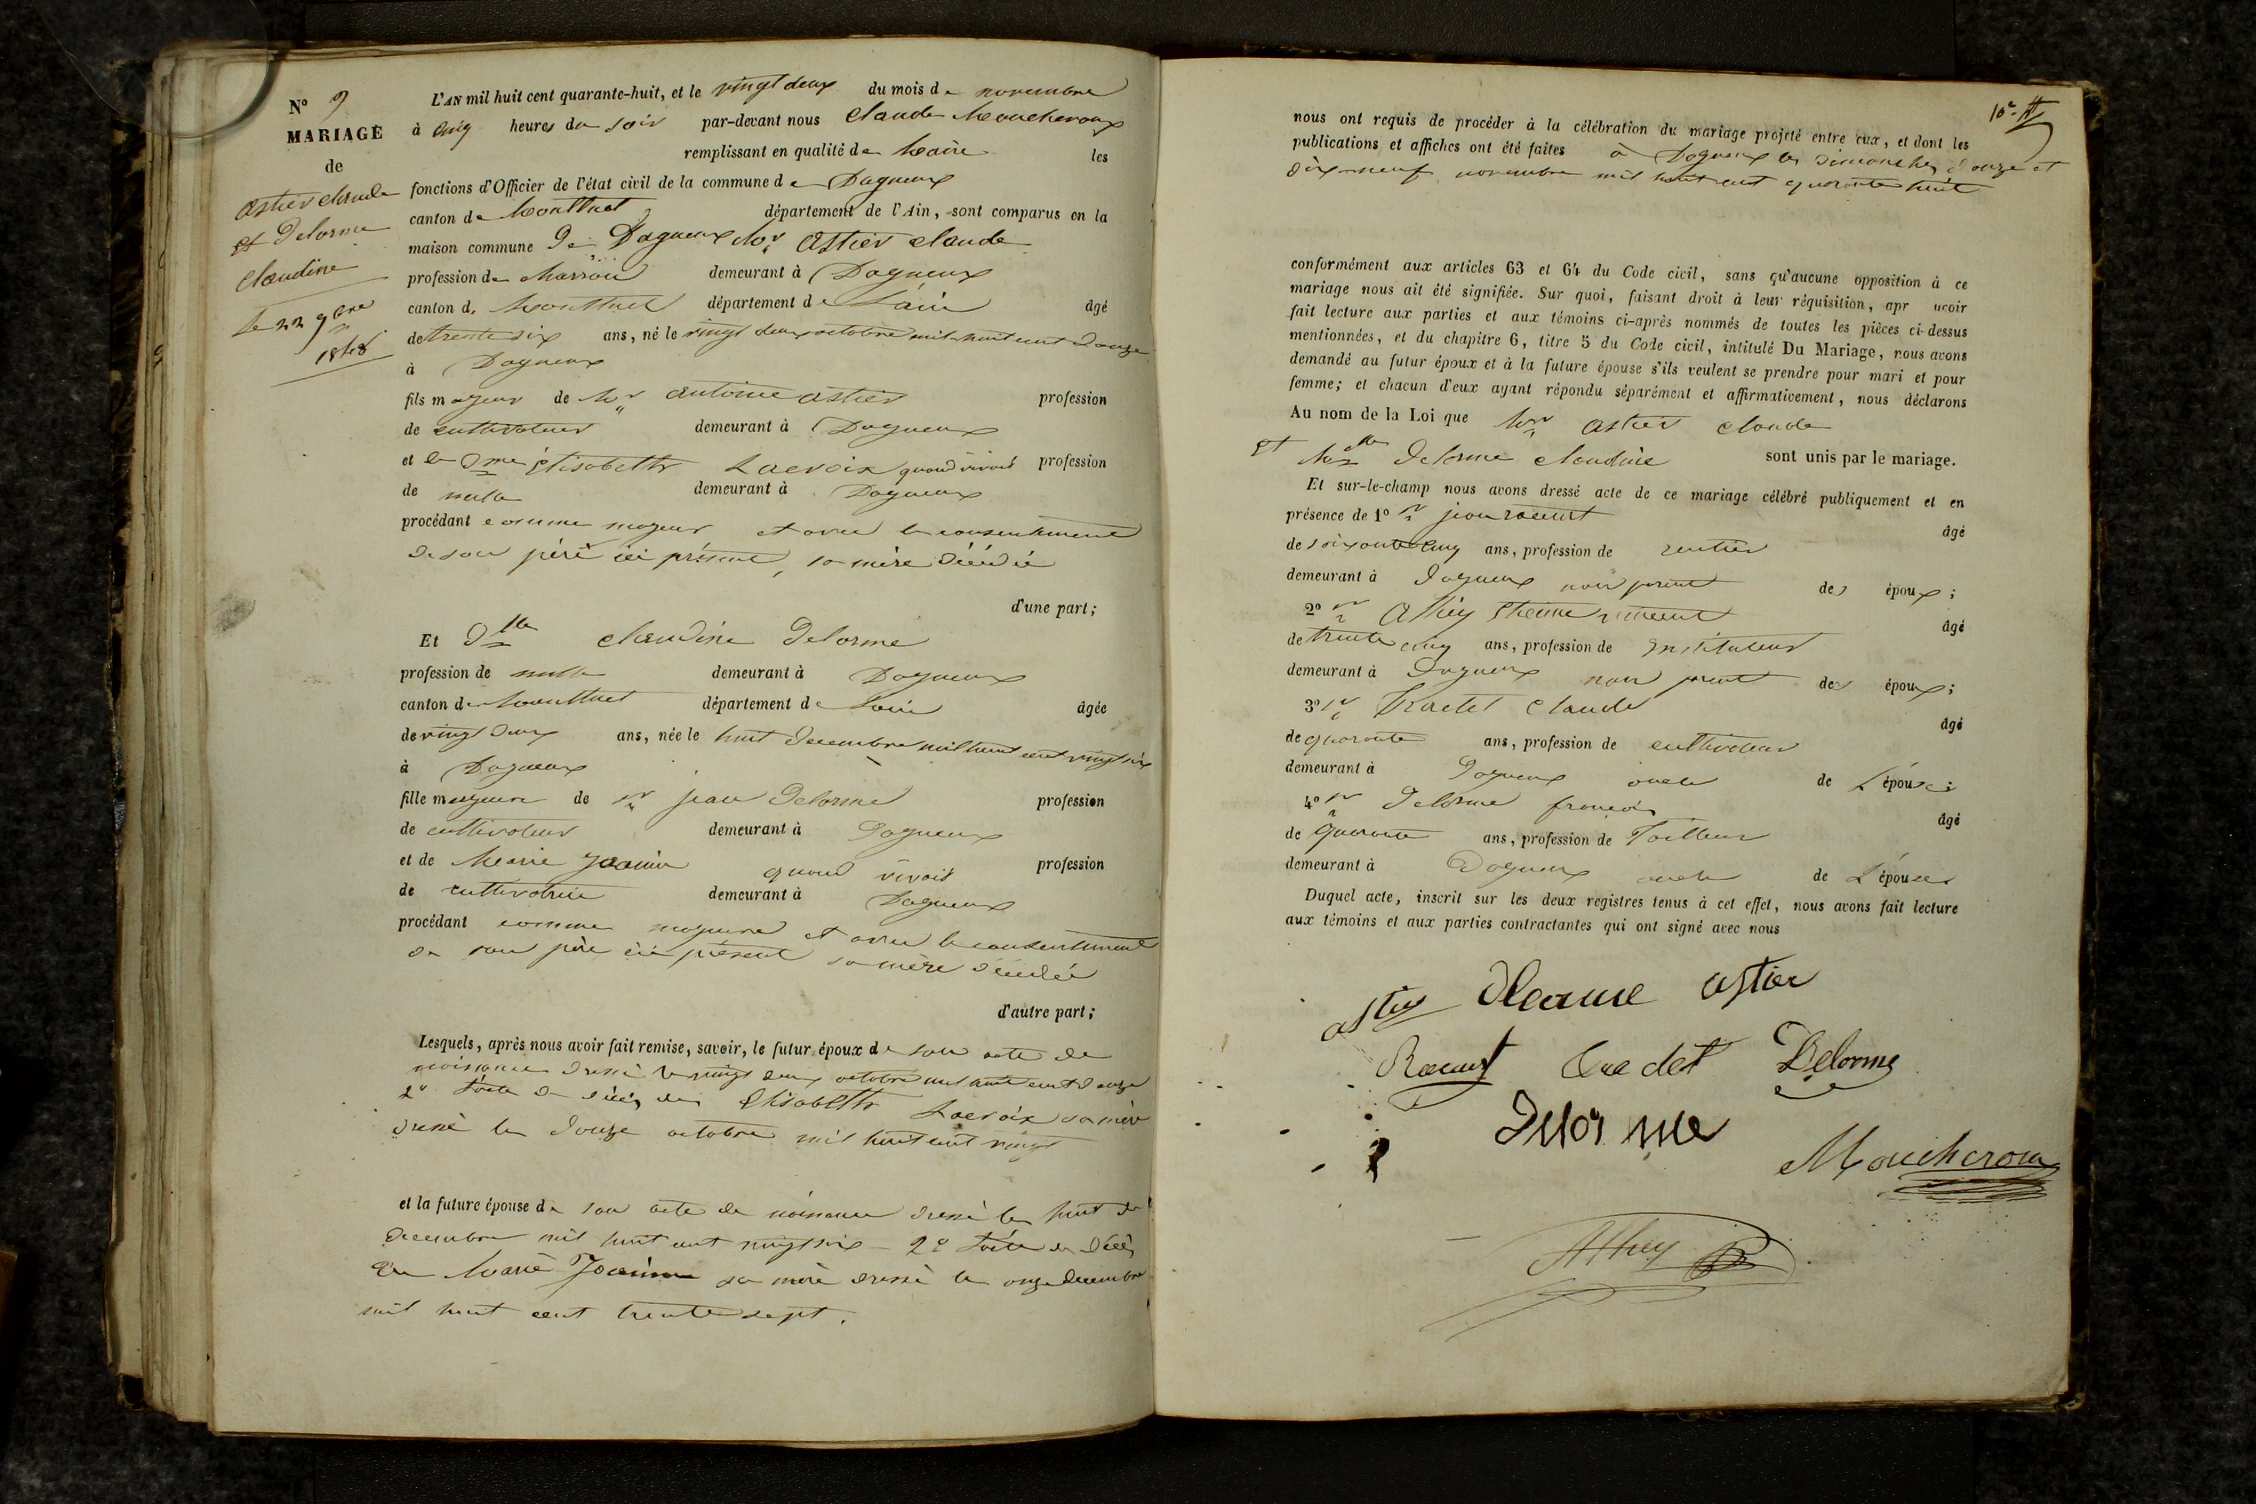 N° 9
MARIAGE
de
Astier Claude
et Delorme
Claudine
le 22 9bre
1848
L'AN mil huit cent quarante-huit, et le vingt deux du mois de novembre
à cinq heures du soir par-devant nous Claude Moucheroux
remplissant en qualité de Maire les
fonctions d'Officier de l'état civil de la commune de Dagneux
canton de Montluel département de l'Ain, sont comparus en la
maison commune de Dagneux Mr Astier Claude
profession de demeurant à Dagneux
canton de Montluel département de Lain âgé
de trente six ans, né le vingt deux octobre mil huit cent douze
à Dagneux
fils majeur de Mr antoine astier profession
de cultivateur demeurant à Dagneux
et de Dme élisabeth Lacroix quand vivait profession
de nulle demeurant à Dagneux
procédant comme majeur et avec le consentement
de son père ici présent, sa mère décédée
d'une part;
Et Dlle Claudine Delorme
profession de nulle demeurant à Dagneux
canton de Montluel département de Lain âgée
de vingt deux ans, née le huit decembre mil huit cent vingt six
à Dagneux
fille majeure de Sr jean Delorme profession
de cultivateur demeurant à Dagneux
et de Marie quand vivait profession
de cultivatrice demeurant à Dagneux
procédant comme majeure et avec le consentement
de son père ici présent sa mère décédée
d'autre part;
Lesquels, après nous avoir fait remise, savoir, le futur époux de son acte de
naissance dressé le vingt deux octobre mil huit cent douze
2° l'acte de décès de Elisabeth Lacroix sa mère
dressé le douze octobre mil huit cent vingt
et la future épouse de son acte de naissance dressé le huit de
decembre mil huit cent vingt six - 2° l'acte de décès
de Marie sa mère dressé le onze decembre
mil huit cent trente sept.
10e
nous ont requis de procéder à la célébration du mariage projeté entre eux, et dont les
publications et affiches ont été faites à Dagneux les dimanches douze et
dix-neuf novembre mil huit cent quarante huit
conformément aux articles 63 et 64 du Code civil, sans qu'aucune opposition à ce
mariage nous ait été signifiée. Sur quoi, faisant droit à leur réquisition, apr avoir
fait lecture aux parties et aux témoins ci-après nommés de toutes les pièces ci-dessus
mentionnées, et du chapitre 6, titre 5 du Code civil, intitulé Du Mariage, nous avons
demandé au futur époux et à la future épouse s'ils veulent se prendre pour mari et pour
femme; et chacun d'eux ayant répondu séparément et affirmativement, nous déclarons
Au nom de la Loi que Mr astier claude
et Mlle Delorme claudine sont unis par le mariage.
Et sur-le-champ nous avons dressé acte de ce mariage célébré publiquement et en
présence de 1° Sr jean âgé
de soixante cinq ans, profession de rentier
demeurant à Dagneux non parent des époux;
2° Sr Athey âgé
de trente cinq ans, profession de instituteur
demeurant à Dagneux non parent des époux;
3° Sr Claude âgé
de quarante ans, profession de cultivateur
demeurant à Dagneux oncle de L'épouse;
4° Sr Delorme françois âgé
de quarante ans, profession de Tailleur
demeurant à Dagneux oncle de L'épouse
Duquel acte, inscrit sur les deux registres tenus à cet effet, nous avons fait lecture
aux témoins et aux parties contractantes qui ont signé avec nous
astier astier
Delorme
Moucheroux
Athey